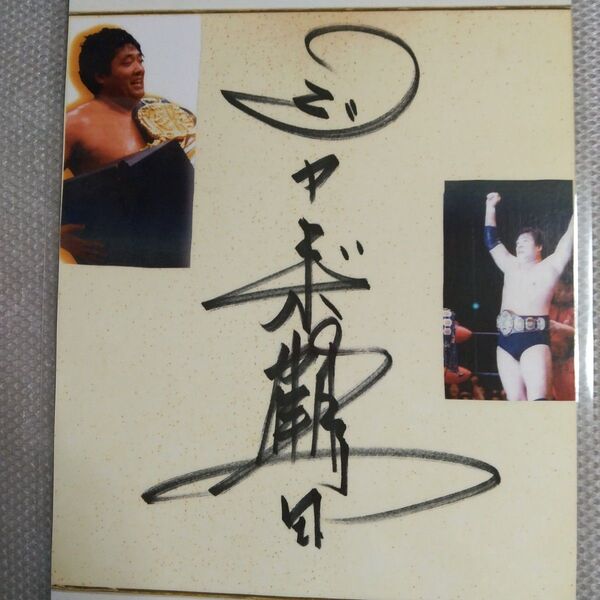 ジャンボ鶴田